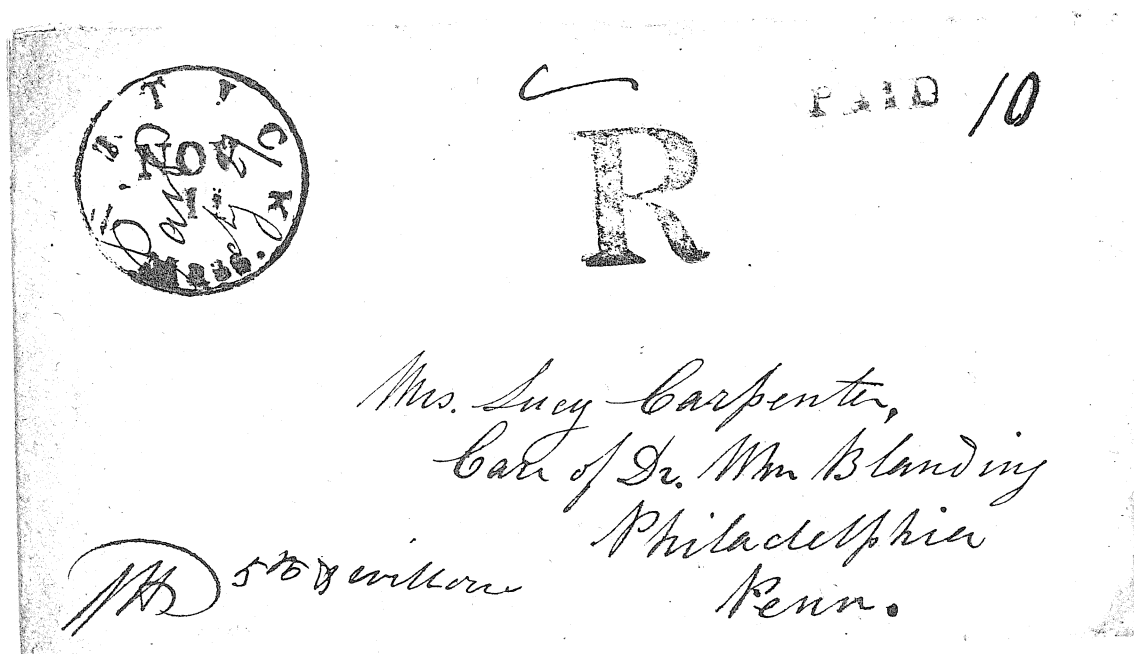 NATICK
NOV
1
MASS.
R
PAID 10
Mrs. Lucy Carpenter,
Care of Dr. Wm Blanding
Philadelphia
Penn.
5th &